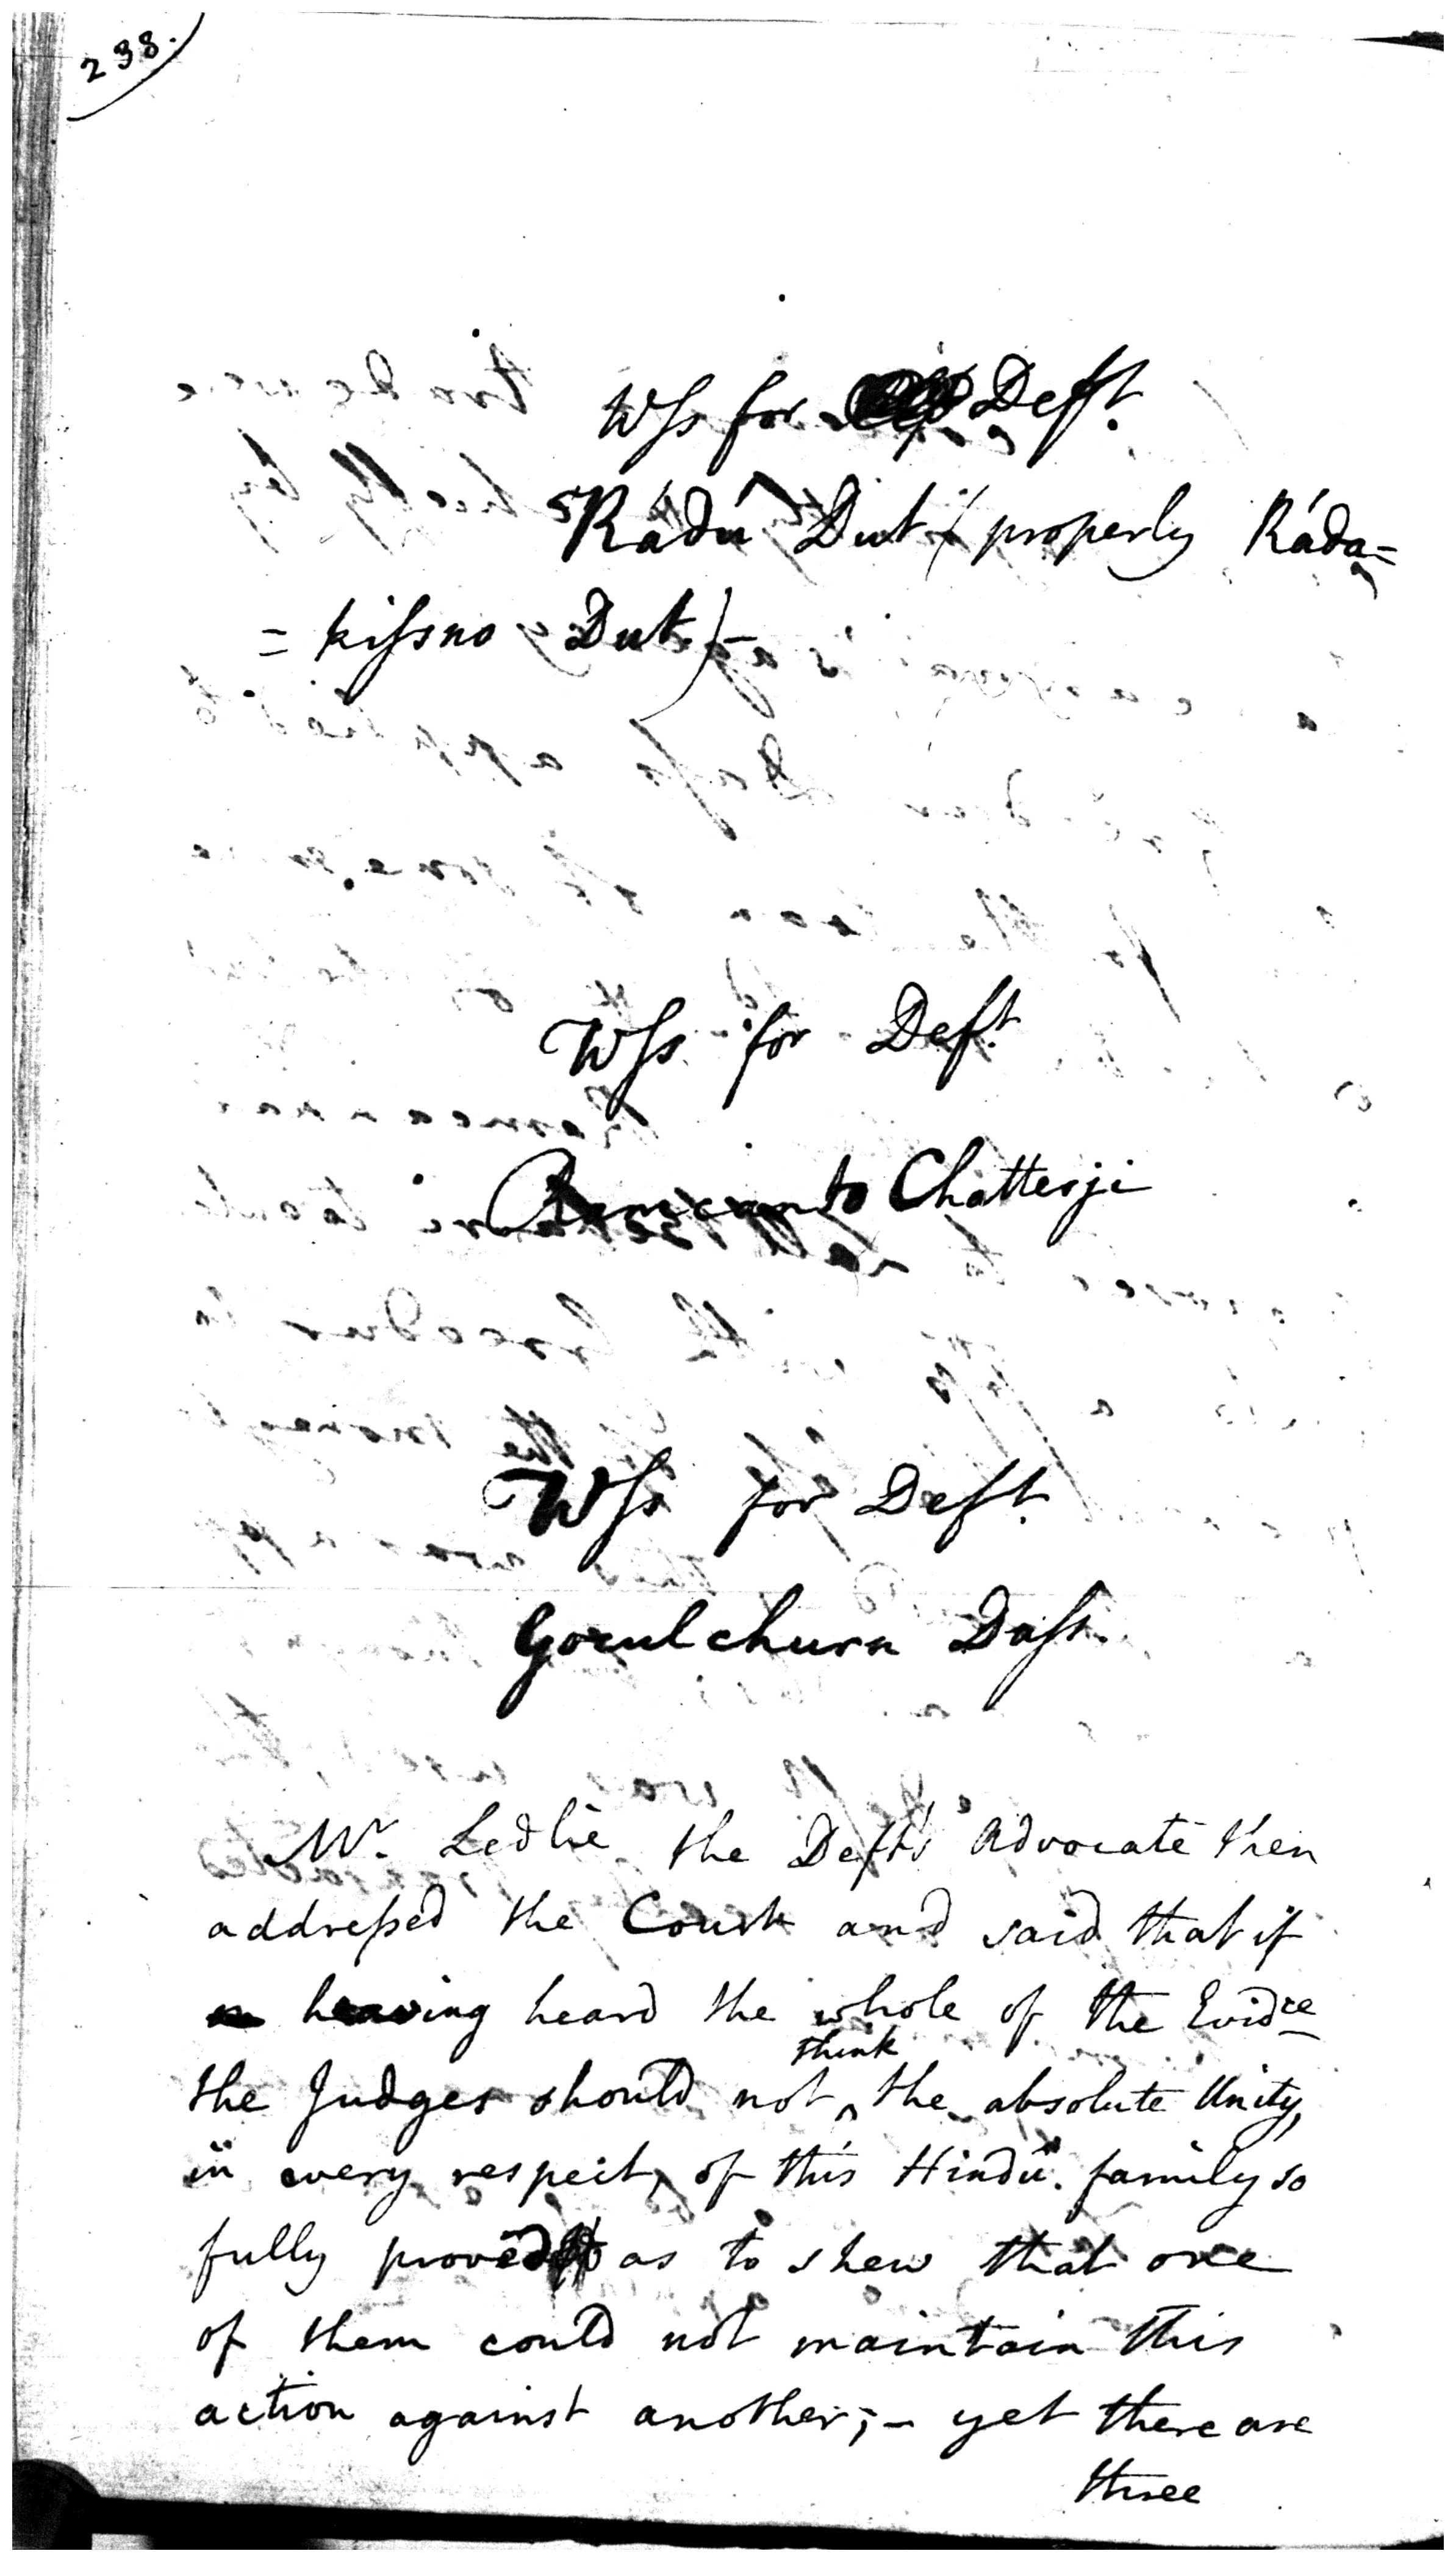 238.
Wss for Deft.
Rádú Dut (properly Ráda=
= kissno Dut)-
Wss for Deft
Ramcanto Chatterji
Wss for Deft.
Gocul churn Dass.
Mr. Ledlie the Deft's Advocate then
addressed the Court and said that if
having heard the whole of the Evidce
think
the Judges should not ^ the absolute Unity,
in every respect, of this Hindú family so
fully proved as to shew that one
of them could not maintain this
action against another;- yet there are
three